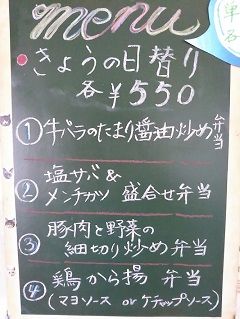 menu
きょうの日替り
各¥550
①牛バラのたまり醤油炒め弁当
②塩サバ&
メンチカツ 盛合せ弁当
③豚肉と野菜の
細切り炒め弁当
④鶏から揚 弁当
(マヨソース or ケチャップソース)